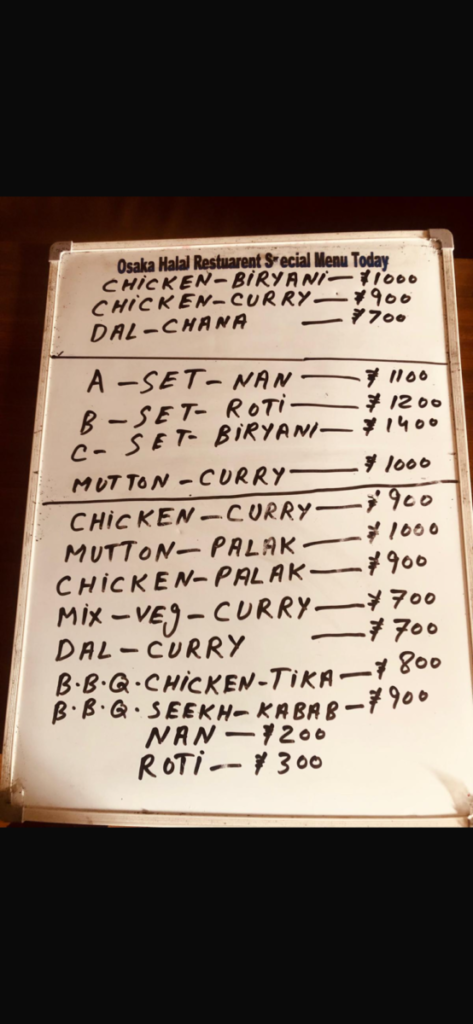 Osaka Halal Restuarent Special Menu Today
CHICKEN-BIRYANI-¥1000
CHICKEN-CURRY-¥900
DAL-CHANA -¥700
A-SET-NAN-¥1100
B-SET-ROTI-¥1200
C-SET-BIRYANI-¥1400
MUTTON-CURRY ¥1000
CHICKEN-CURRY-¥900
MUTTON-PALAK-¥1000
CHICKEN-PALAK-¥900
MIX-VEg-CURRY-¥700
DAL-CURRY -¥700
B.B.Q.CHICKEN-TIKA-¥800
B.B.Q.SEEKH-KABAB-¥900
NAN-¥200
ROTI-¥300